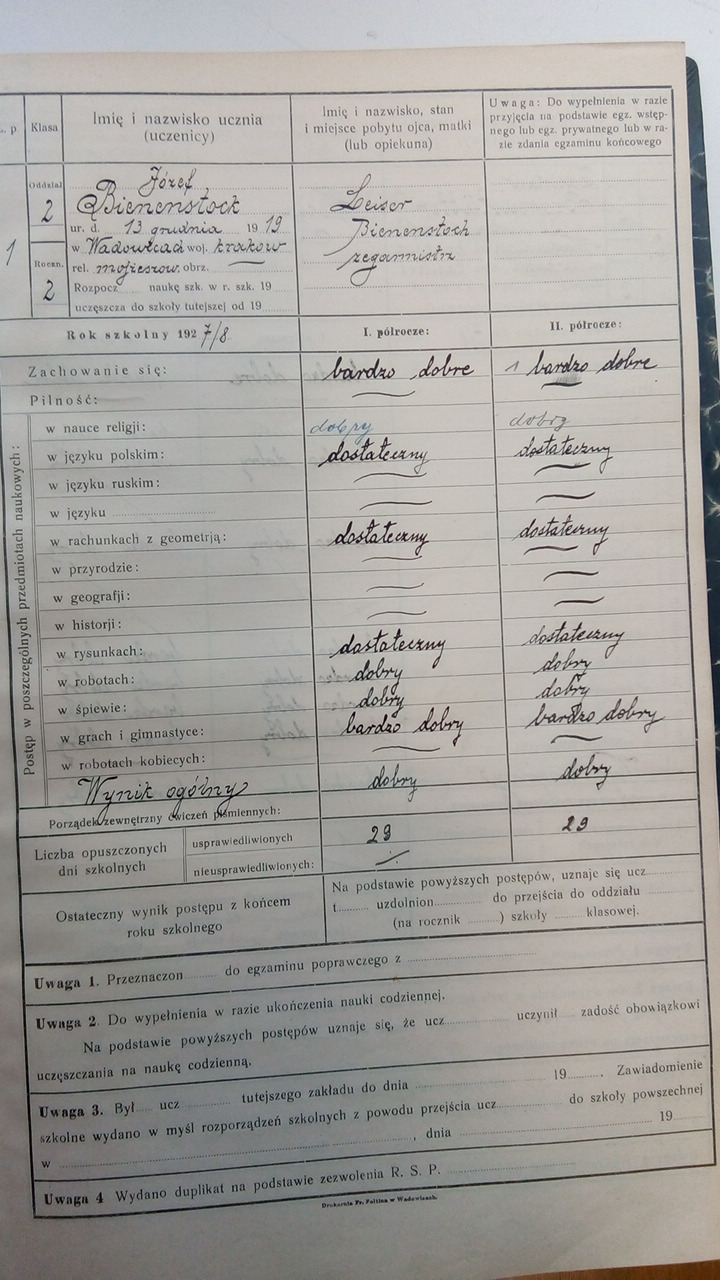 L. p
Klasa
Imię i nazwisko ucznia
(uczenicy)
Imię i nazwisko, stan
i miejsce pobytu ojca, matki
(lub opiekuna)
Uwaga: Do wypełnienia w razie
przyjęcia na podstawie egz. wstęp-
nego lub egz. prywatnego lub w ra-
zie zdania egzaminu końcowego
1
Oddział
2
Roczn.
2
Józef
Bienenstock
ur. d. 13 grudnia 1919
w Wadowicach woj. krakow
rel. mojżeszow. obrz.
Rozpocz naukę szk. w r. szk. 19
uczęszcza do szkoły tutejszej od 19
Leiser
Bienenstock
zegarmistrz
Rok szkolny 1927/8
I. półrocze:
II. półrocze:
Zachowanie się: bardzo dobre bardzo dobre
Pilność:
Postęp w poszczególnych przedmiotach naukowych:
w nauce religji: dobry dobry
w języku polskim: dostateczny dostateczny
w języku ruskim:
w języku
w rachunkach z geometrją: dostateczny dostateczny
w przyrodzie:
w geografji:
w historji:
w rysunkach: dostateczny dostateczny
w robotach: dobry dobry
w śpiewie: dobry dobry
w grach i gimnastyce: bardzo dobry bardzo dobry
w robotach kobiecych:
Wynik ogólny dobry dobry
Porządek zewnętrzny ćwiczeń piśmiennych:
Liczba opuszczonych
dni szkolnych
usprawiedliwionych 29 29
nieusprawiedliwionych:
Ostateczny wynik postępu z końcem
roku szkolnego
Na podstawie powyższych postępów, uznaje się ucz
t. uzdolnion do przejścia do oddziału
(na rocznik ) szkoły klasowej.
Uwaga 1. Przeznaczon do egzaminu poprawczego z
Uwaga 2. Do wypełnienia w razie ukończenia nauki codziennej.
Na podstawie powyższych postępów uznaje się, że ucz uczynił zadość obowiązkowi
uczęszczania na naukę codzienną.
Uwaga 3. Był ucz tutejszego zakładu do dnia 19 . Zawiadomienie
szkolne wydano w myśl rozporządzeń szkolnych z powodu przejścia ucz do szkoły powszechnej
w , dnia 19
Uwaga 4 Wydano duplikat na podstawie zezwolenia R. S. P.
Drukarnia Fr. Foltina w Wadowicach.